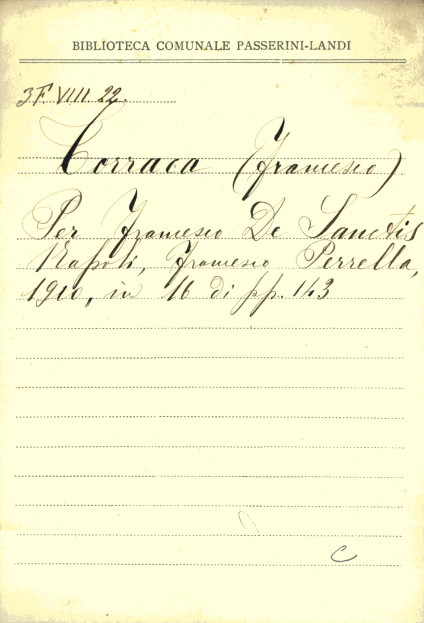 BIBLIOTECA COMUNALE PASSERINI-LANDI
3F VIII. 22.
Torraca (Francesco)
Per Francesco De Sanctis
Napoli, Francesco Perrella,
1910, in 16 di pp. 143
C